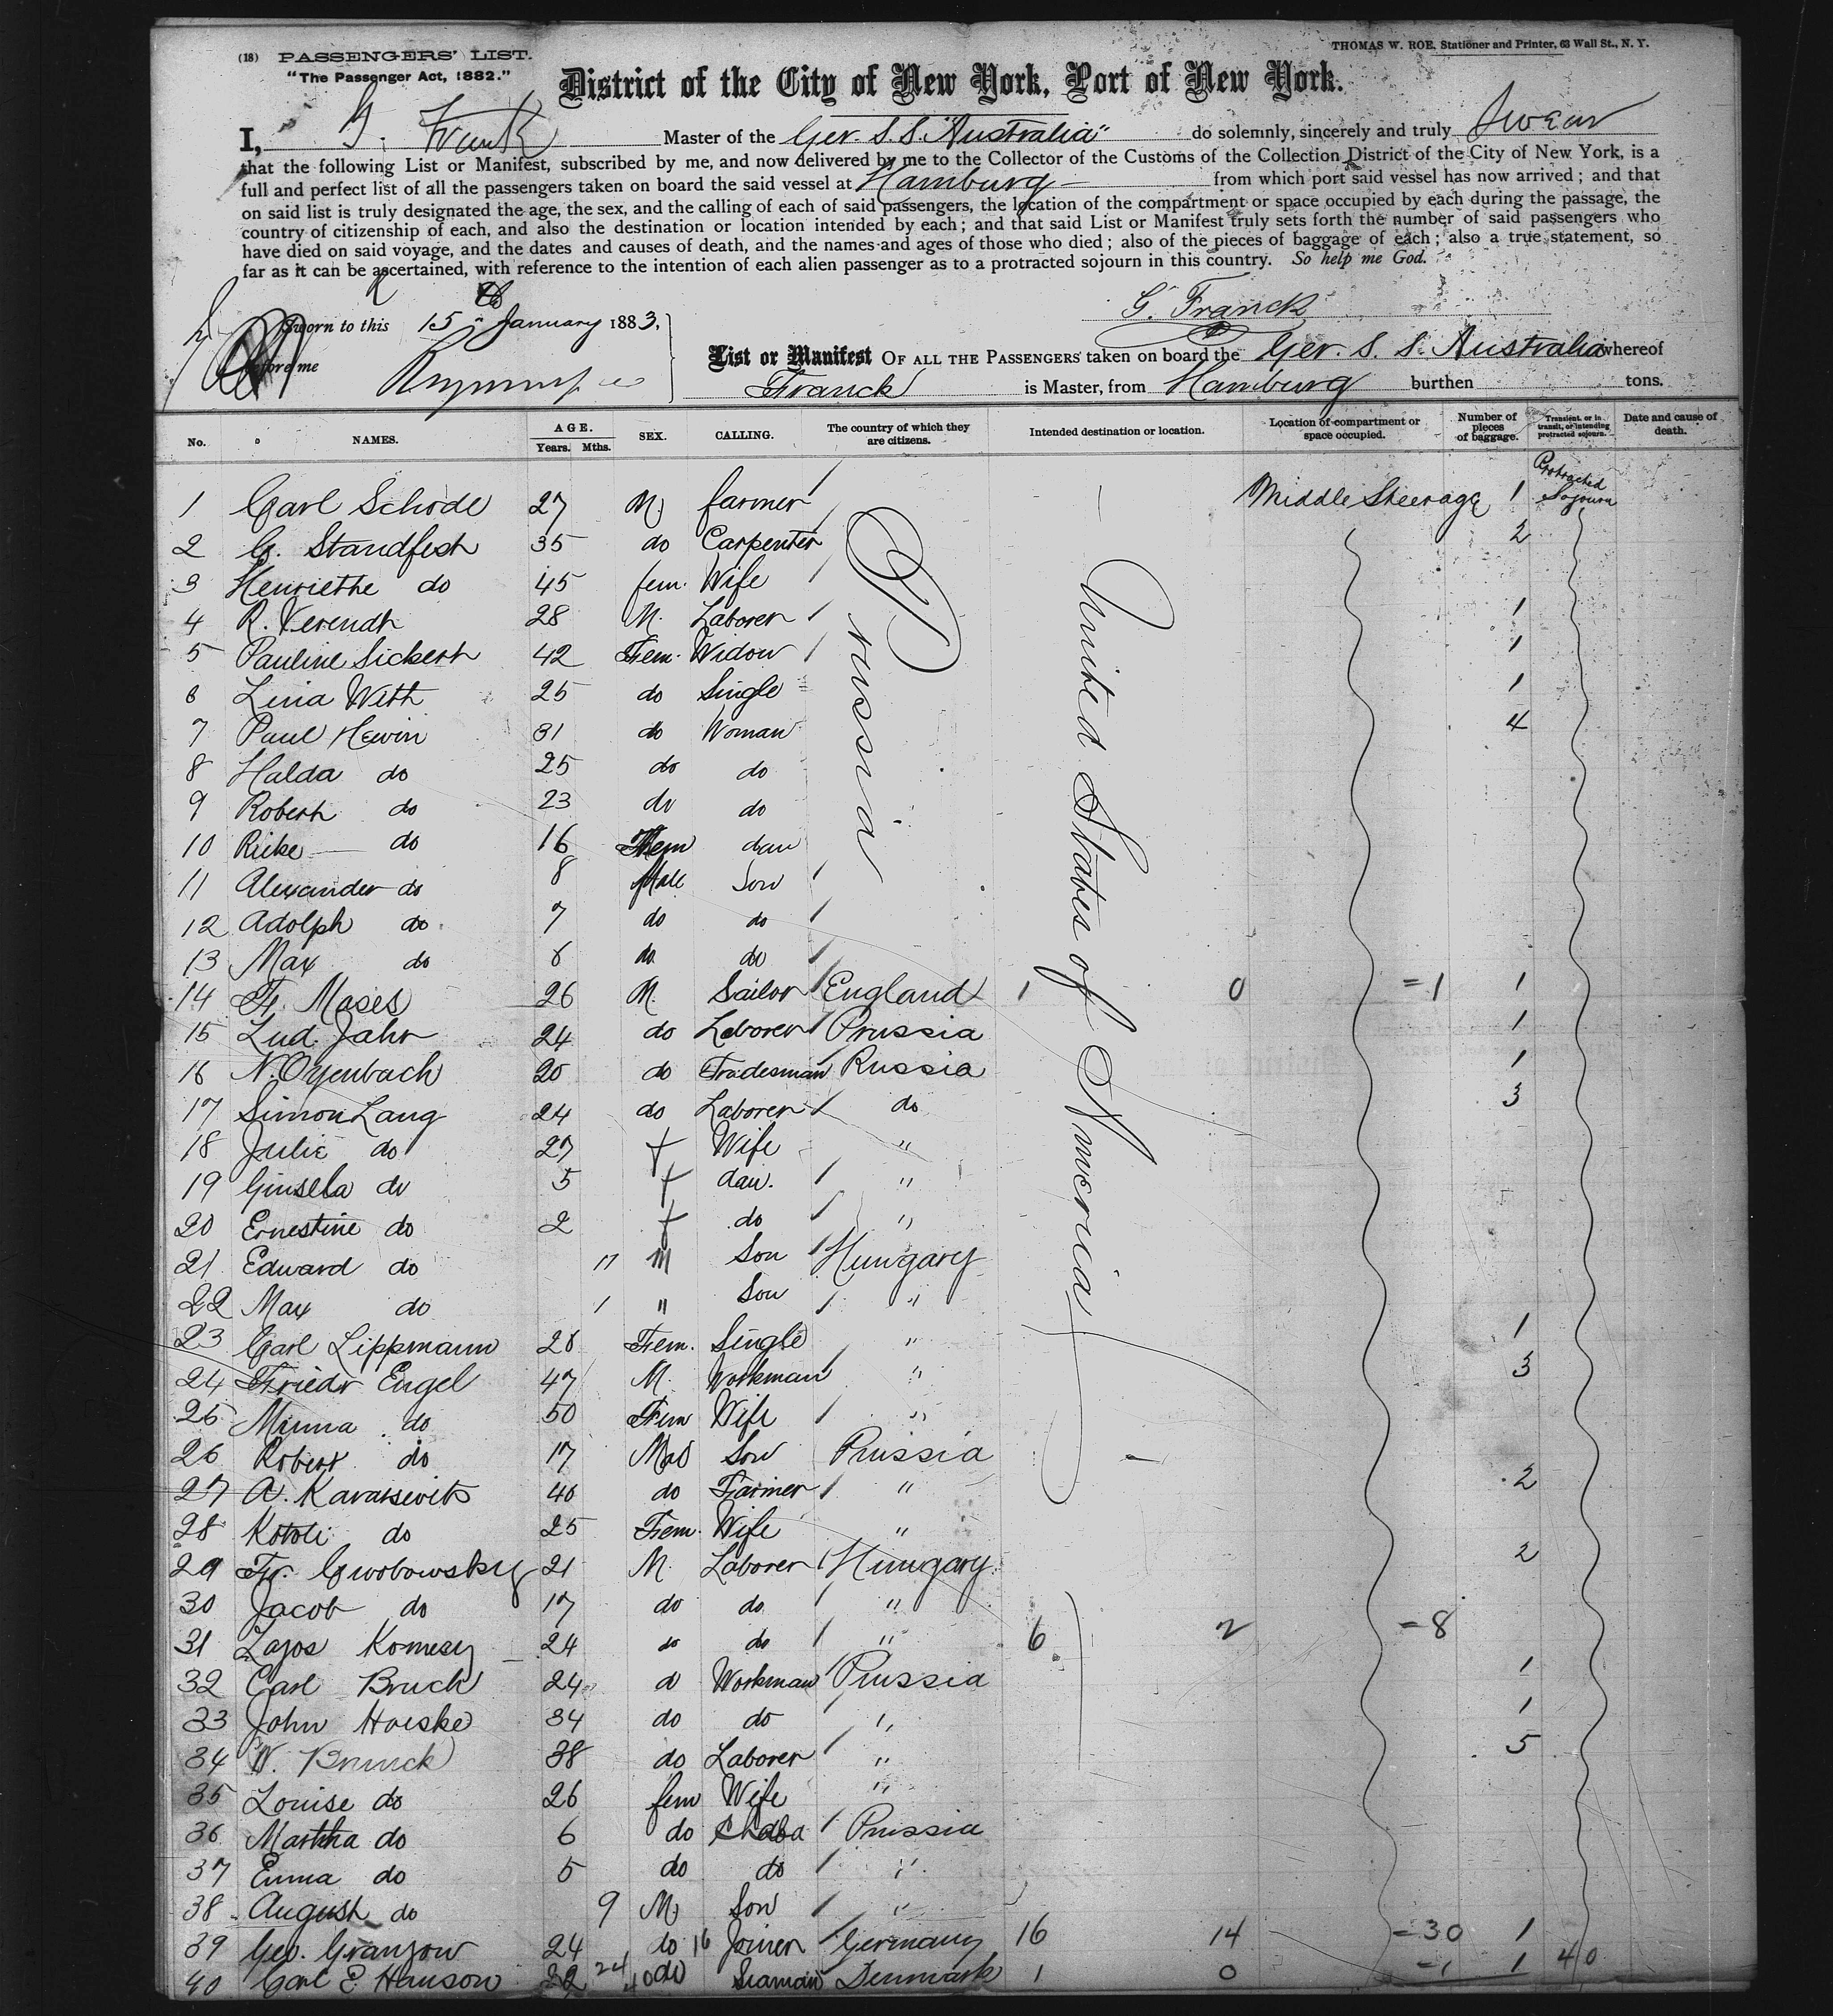 (18) PASSENGERS' LIST.
THOMAS W. ROE, Stationer and Printer, 63 Wall St., N. Y.
"The Passenger Act, 1882."
District of the City of New York, Port of New York.
I, G. Franck Master of the Ger. S. S. "Australia" do solemnly, sincerely and truly Swear
that the following List or Manifest, subscribed by me, and now delivered by me to the Collector of the Customs of the Collection District of the City of New York, is a
full and perfect list of all the passengers taken on board the said vessel at Hamburg from which port said vessel has now arrived; and that
on said list is truly designated the age, the sex, and the calling of each of said passengers, the location of the compartment or space occupied by each during the passage, the
country of citizenship of each, and also the destination or location intended by each; and that said List or Manifest truly sets forth the number of said passengers who
have died on said voyage, and the dates and causes of death, and the names and ages of those who died; also of the pieces of baggage of each; also a true statement, so
far as it can be ascertained, with reference to the intention of each alien passenger as to a protracted sojourn in this country. So help me God.
G. Franck
Sworn to this 15 January 1883,
before me
List or Manifest OF ALL THE PASSENGERS taken on board the Ger. S. S. Australia whereof
Franck is Master, from Hamburg burthen tons.
No. NAMES. AGE. Years. Mths. SEX. CALLING. The country of which they are citizens. Intended destination or location. Location of compartment or space occupied. Number of pieces of baggage. Transient, or in transit, or intending protracted sojourn. Date and cause of death.
Prussia
United States of America
1 Carl Schode 27 M farmer Middle Steerage 1 Protracted Sojourn
2 G. Standfest 35 do Carpenter 2
3 Henriethe do 45 fem. Wife
4 R. Verendt 28 M. Laborer 1
5 Pauline Sickert 42 Fem. Widow 1
6 Lina With 25 do Single 1
7 Paul Hewin 31 do Woman 4
8 Halda do 25 do do
9 Robert do 23 do do
10 Ricke do 16 Fem dau
11 Alexander do 8 Male Son
12 Adolph do 7 do do
13 Max do 6 do do
14 Fr. Moses 26 M. Sailor England 1 0 =1 1
15 Lud. Jahr 24 do Laborer Prussia 1
16 N. Oyenbach 20 do Tradesman Russia 1
17 Simon Lang 24 do Laborer do 3
18 Julie do 27 f Wife "
19 Ginsela do 5 f dau. "
20 Ernestine do 2 f do "
21 Edward do 11 M Son Hungary
22 Max do 1 " Son "
23 Carl Lippmann 28 Fem. Single " 1
24 Friedr Engel 47 M. Workman " 3
25 Minna do 50 Fem Wife "
26 Robert do 17 Mas Son Prussia
27 A. Karassewits 40 do Farmer " 2
28 Kotoli do 25 Fem. Wife "
29 Fr. Gwobowsky 21 M. Laborer Hungary 2
30 Jacob do 17 do do "
31 Lajos Komesy 24 do do " 6 2 =8
32 Carl Bruck 24 d Workman Prussia 1
33 John Hoeske 34 do do " 1
34 W. Brunck 38 do Laborer " 5
35 Louise do 26 fem Wife "
36 Martha do 6 do Prussia
37 Emma do 5 do do "
38 August do 9 M Son "
39 Geo. Granzow 24 do 16 Joiner Germany 16 14 =30 1
40 Carl E. Hanson 22 24 40 do Seaman Denmark 1 0 =1 1 40